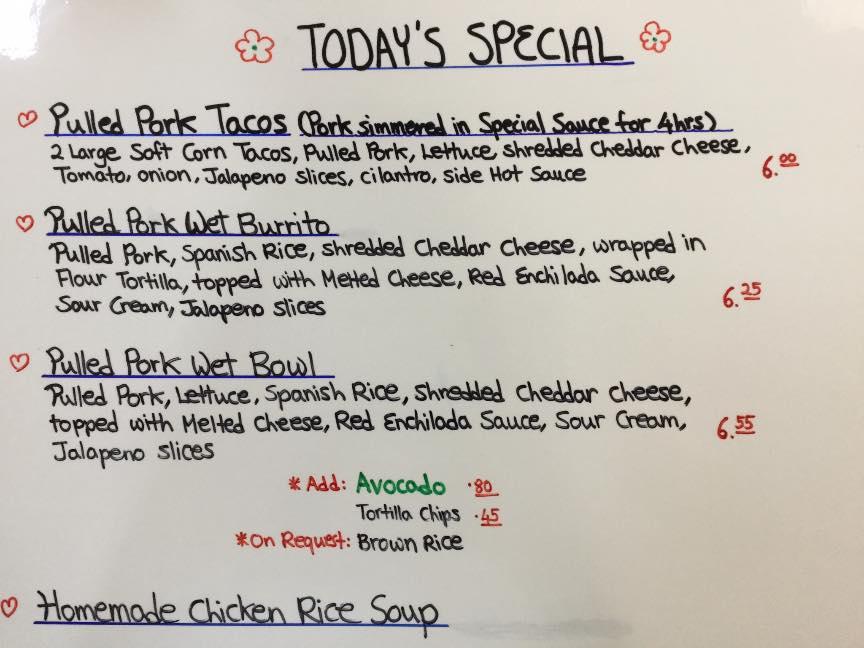 TODAY'S SPECIAL
Pulled Pork Tacos (Pork simmered in Special Sauce for 4hrs)
2 Large Soft Corn Tacos, Pulled Pork, Lettuce, Shredded Cheddar Cheese,
Tomato, onion, Jalapeno slices, cilantro, side Hot Sauce
6.00
Pulled Pork Wet Burrito
Pulled Pork, Spanish Rice, shredded Cheddar Cheese, wrapped in
Flour Tortilla, topped with Melted Cheese, Red Enchilada Sauce,
Sour Cream, Jalapeno slices
6.25
Pulled Pork Wet Bowl
Pulled Pork, Lettuce, Spanish Rice, Shredded Cheddar Cheese,
topped with Melted Cheese, Red Enchilada Sauce, Sour Cream,
Jalapeno slices
6.55
*Add: Avocado .80
Tortilla Chips .45
*On Request: Brown Rice
Homemade Chicken Rice Soup